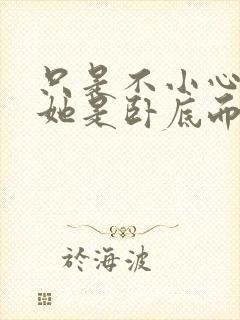 只是不小心
她是卧底而
於海波